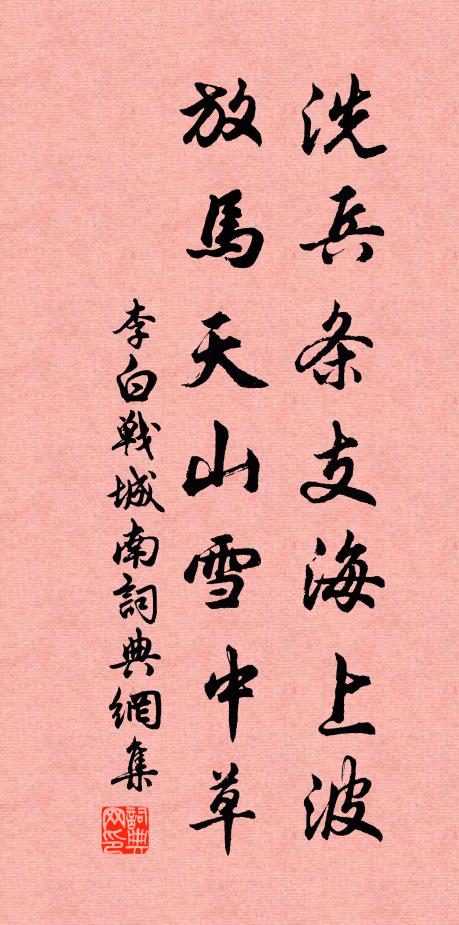 洗兵条支海上波
放馬天山雪中草
李白戰城南詞典網集
詞典網印